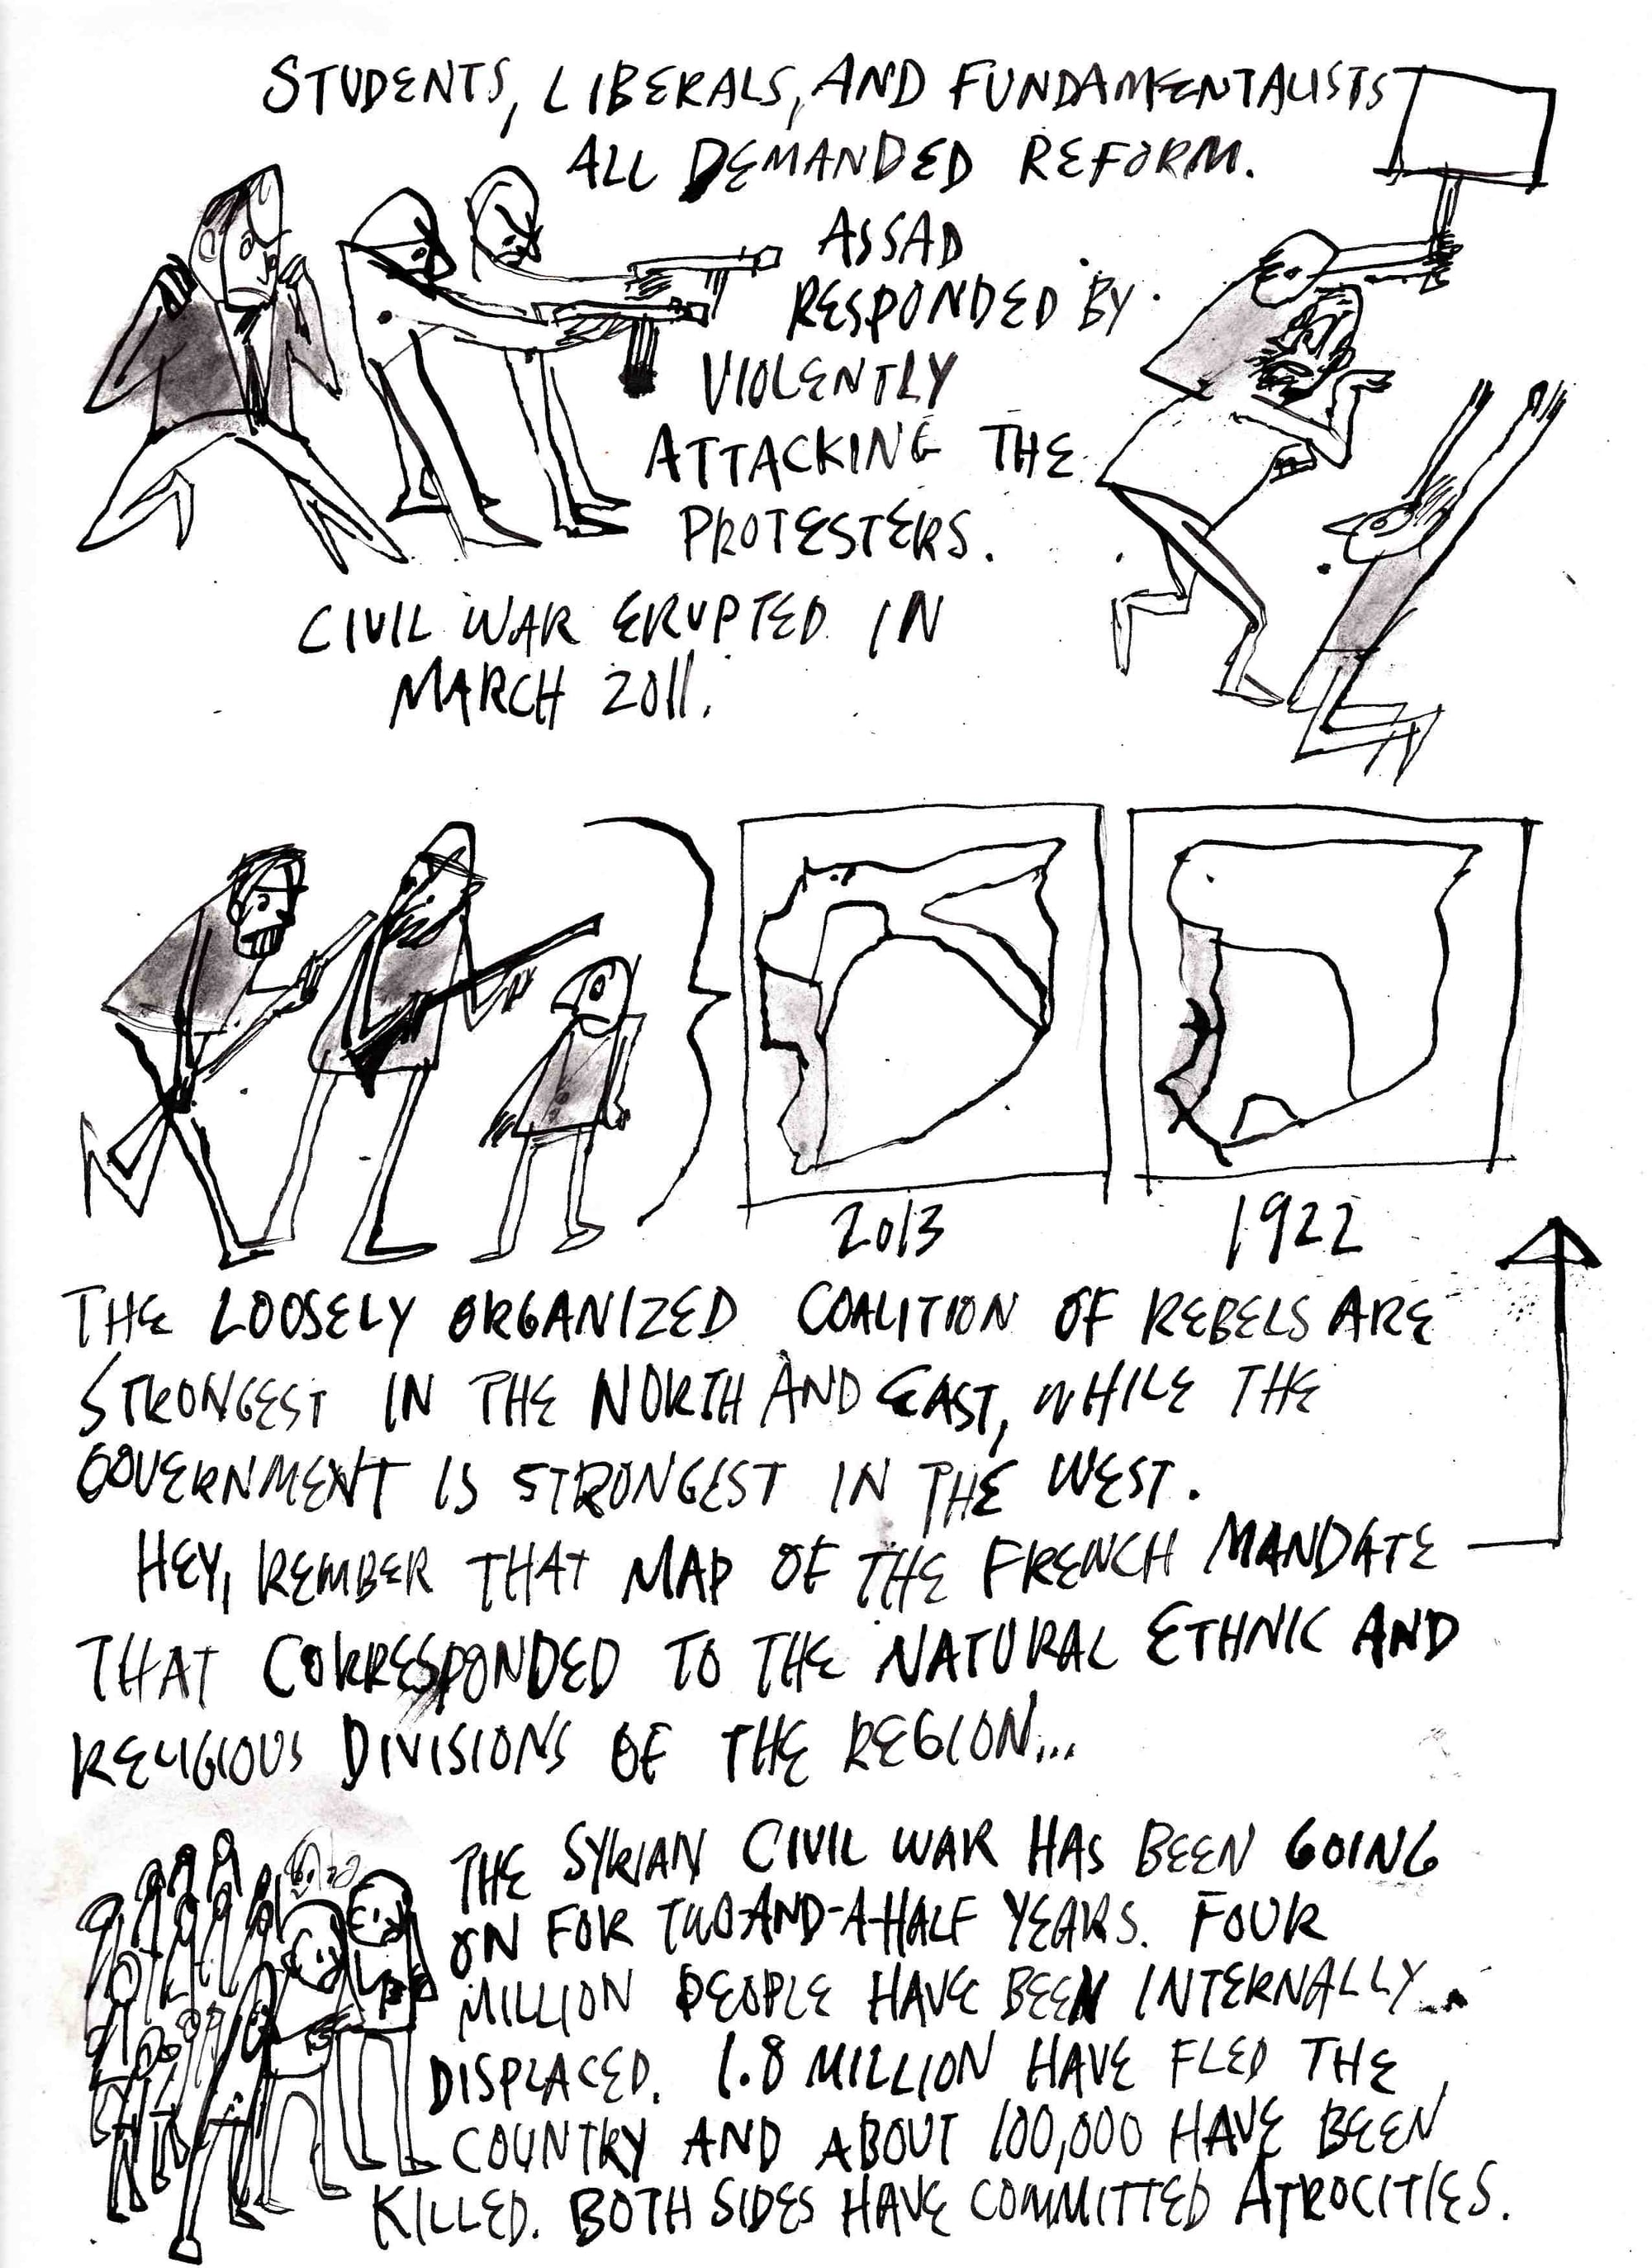 STUDENTS, LIBERALS, AND FUNDAMENTALISTS
ALL DEMANDED REFORM.
ASSAD
RESPONDED BY
VIOLENTLY
ATTACKING THE
PROTESTERS.
CIVIL WAR ERUPTED IN
MARCH 2011.
2013
1922
THE LOOSELY ORGANIZED COALITION OF REBELS ARE
STRONGEST IN THE NORTH AND EAST, WHILE THE
GOVERNMENT IS STRONGEST IN THE WEST.
HEY, REMBER THAT MAP OF THE FRENCH MANDATE
THAT CORRESPONDED TO THE NATURAL ETHNIC AND
RELIGIOUS DIVISIONS OF THE REGION...
THE SYRIAN CIVIL WAR HAS BEEN GOING
ON FOR TWO-AND-A-HALF YEARS. FOUR
MILLION PEOPLE HAVE BEEN INTERNALLY
DISPLACED. 1.8 MILLION HAVE FLED THE
COUNTRY AND ABOUT 100,000 HAVE BEEN
KILLED. BOTH SIDES HAVE COMMITTED ATROCITIES.